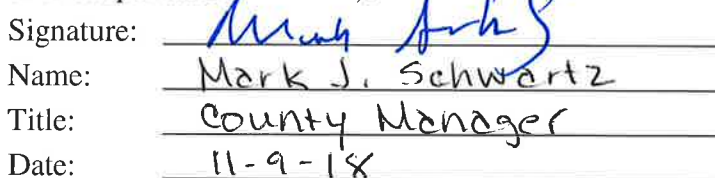 Signature:
Name: Mark J. Schwartz
Title: County Manager
Date: 11-9-18